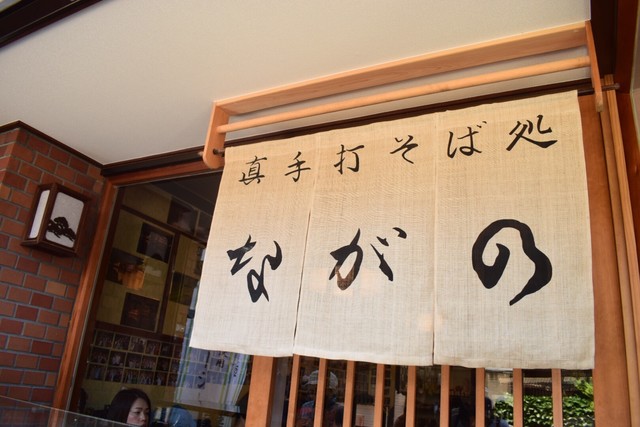 真手打そば処
ながの